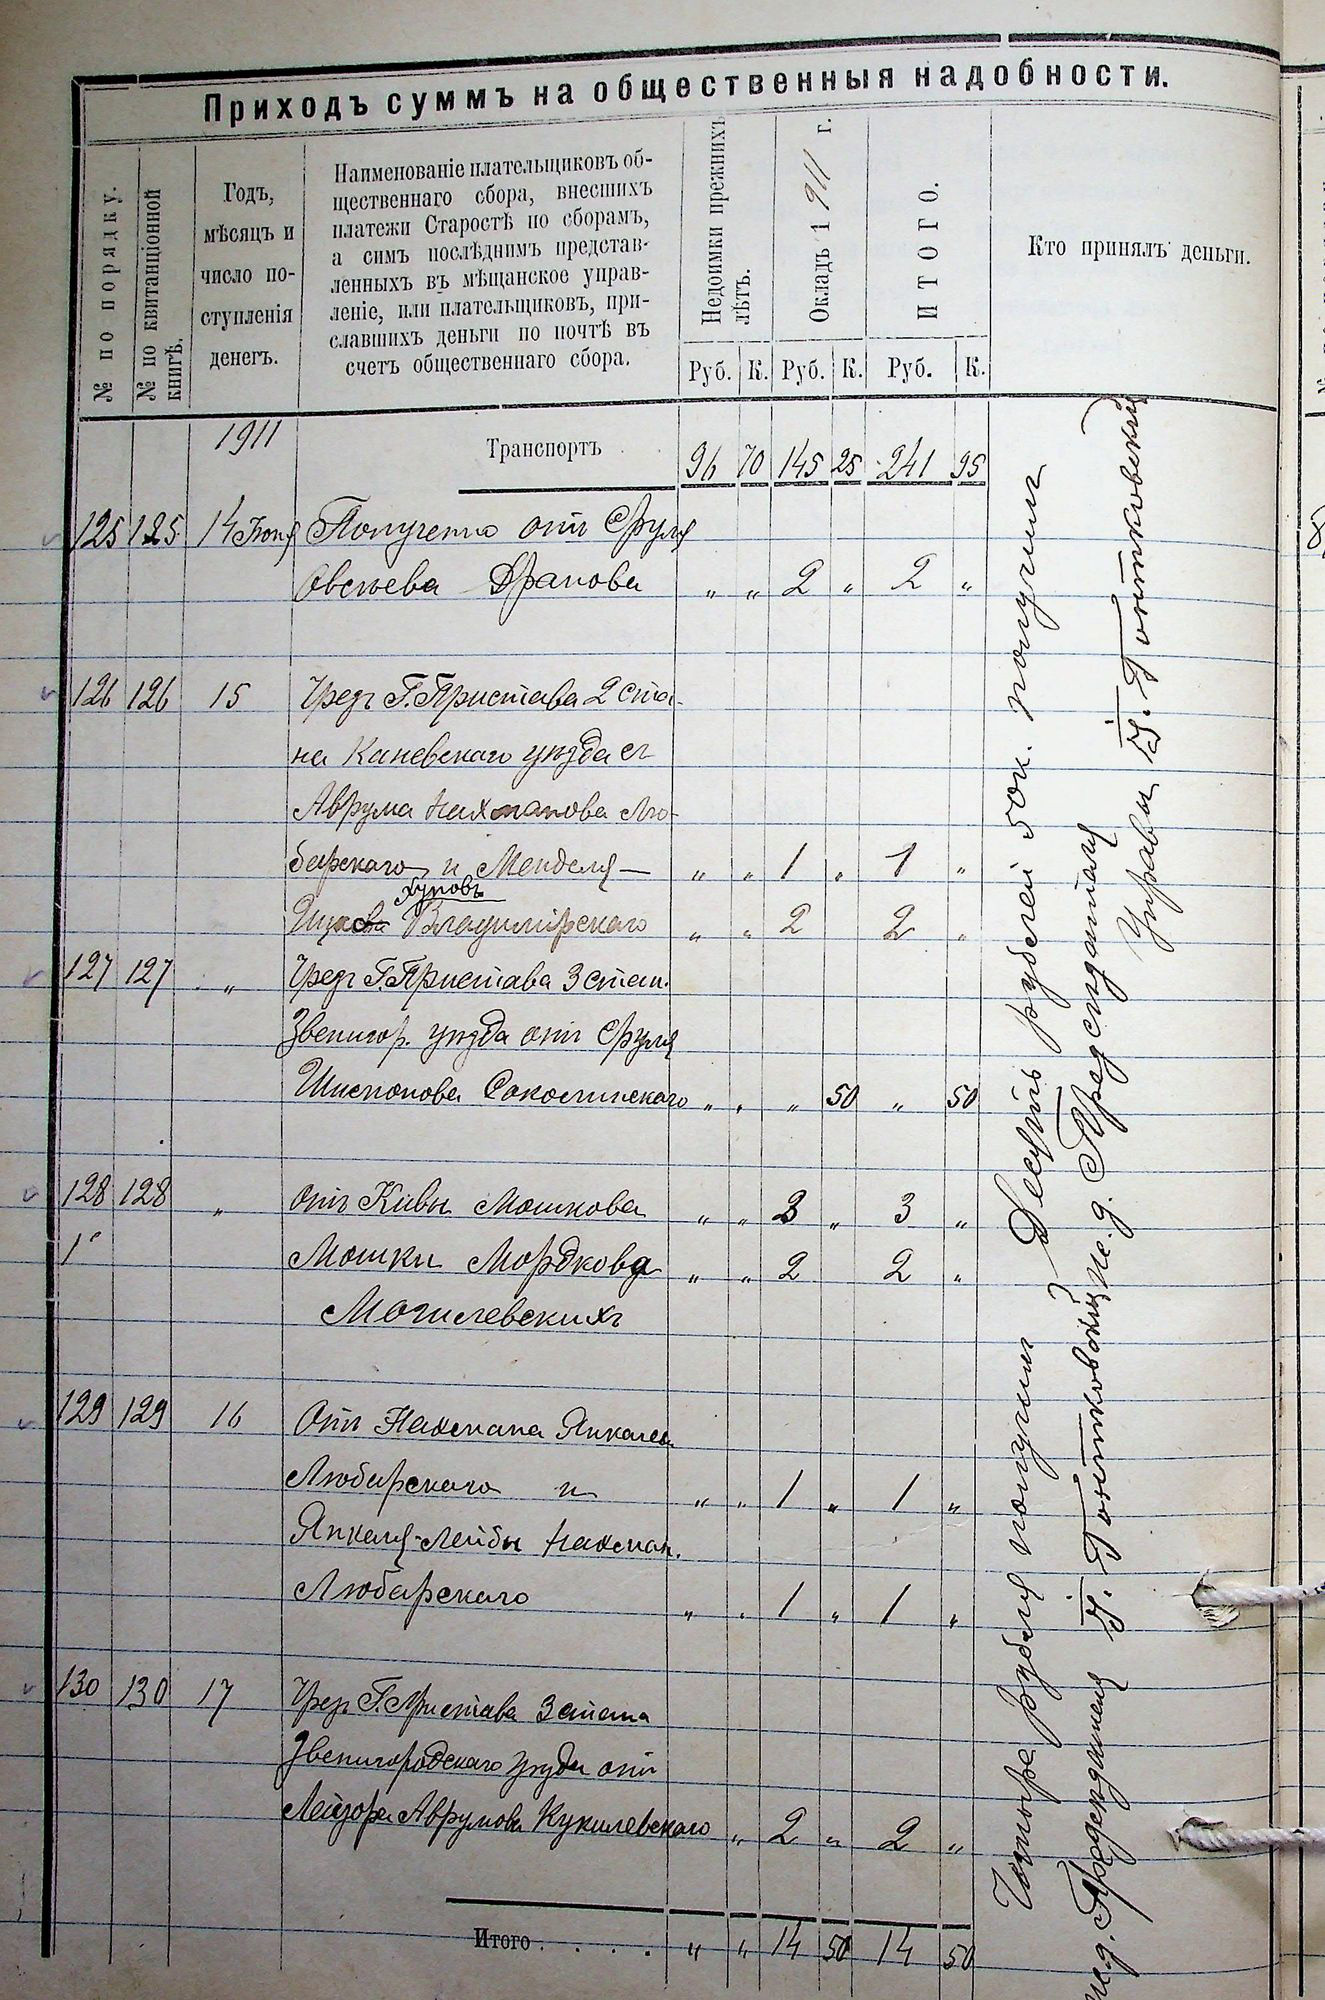 Приходъ суммъ на общественныя надобности.
№ по порядку.
№ по квитанціонной
книгѣ.
Годъ,
мѣсяцъ и
число по-
ступленія
денегъ.
Наименованіе плательщиковъ об-
щественнаго сбора, внесшихъ
платежи Старостѣ по сборамъ,
а симъ послѣднимъ представ-
ленныхъ въ мѣщанское управ-
леніе, или плательщиковъ, при-
славшихъ деньги по почтѣ въ
счетъ общественнаго сбора.
Недоимки прежнихъ
лѣтъ.
Окладъ 1911 г.
ИТОГО.
Кто принялъ деньги.
Руб. К. Руб. К. Руб. К.
1911 Транспортъ 96 70 145 25 241 95
125 125 14 Іюня Получено отъ Сруля
Овсѣева Драпова " " 2 " 2 "
126 126 15 Чрезъ Г. Пристава 2 ста-
на Каневскаго уѣзда съ
Аврума Нахманова Лю-
барскаго и Менделя — " " 1 " 1 "
Владимірскаго " " 2 2 "
127 127 " Чрезъ Г. Пристава 3 стан.
Звенигор. уѣзда отъ Сруля
Соколинскаго " " " 50 " 50
128 128 " отъ Кивы Мошкова " " 3 " 3 "
Мошки Мордкова " " 2 2 "
Могилевскихъ
129 129 16 Отъ Нахмана Янкелева
Любарскаго и " " 1 " 1 "
Янкеля-Лейбы Нахман.
Любарскаго " " 1 " 1 "
130 130 17 Чрезъ Г. Пристава 3 стана
Звенигородскаго уѣзда отъ
Лейзора Аврумова Кукилевскаго " 2 " 2 "
Итого . . . . " " 14 50 14 50
Десять рублей 50 к. получилъ
И. д. Предсѣдателя
Управы
Четыре рубля получилъ